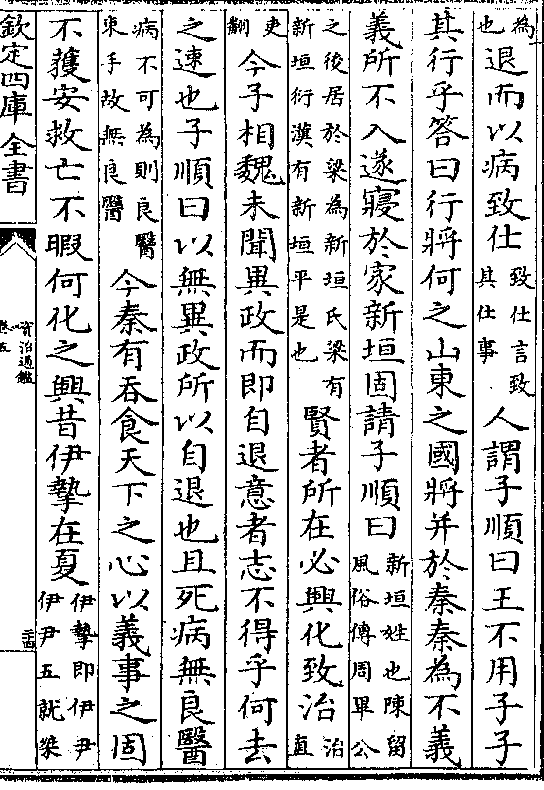 為也退而以病致仕致仕言致其仕事人謂子順曰王不用子子
其行乎答曰行將何之山東之國將并於秦秦為不義
義所不入遂寢於家新垣固請子順曰新垣姓也陳留風俗傳周畢公
之後居於梁為新垣氏梁有新垣衍漢有新垣平是也賢者所在必興化致治治直
吏翻今子相魏未聞異政而即自退意者志不得乎何去
之速也子順曰以無異政所以自退也且死病無良醫
病不可為則良醫束手故無良醫今秦有吞食天下之心以義事之固
不獲安救亡不暇何化之興昔伊摯在夏伊摯即伊尹伊尹五就桀
欽定四庫全書
資治通鑑
卷五